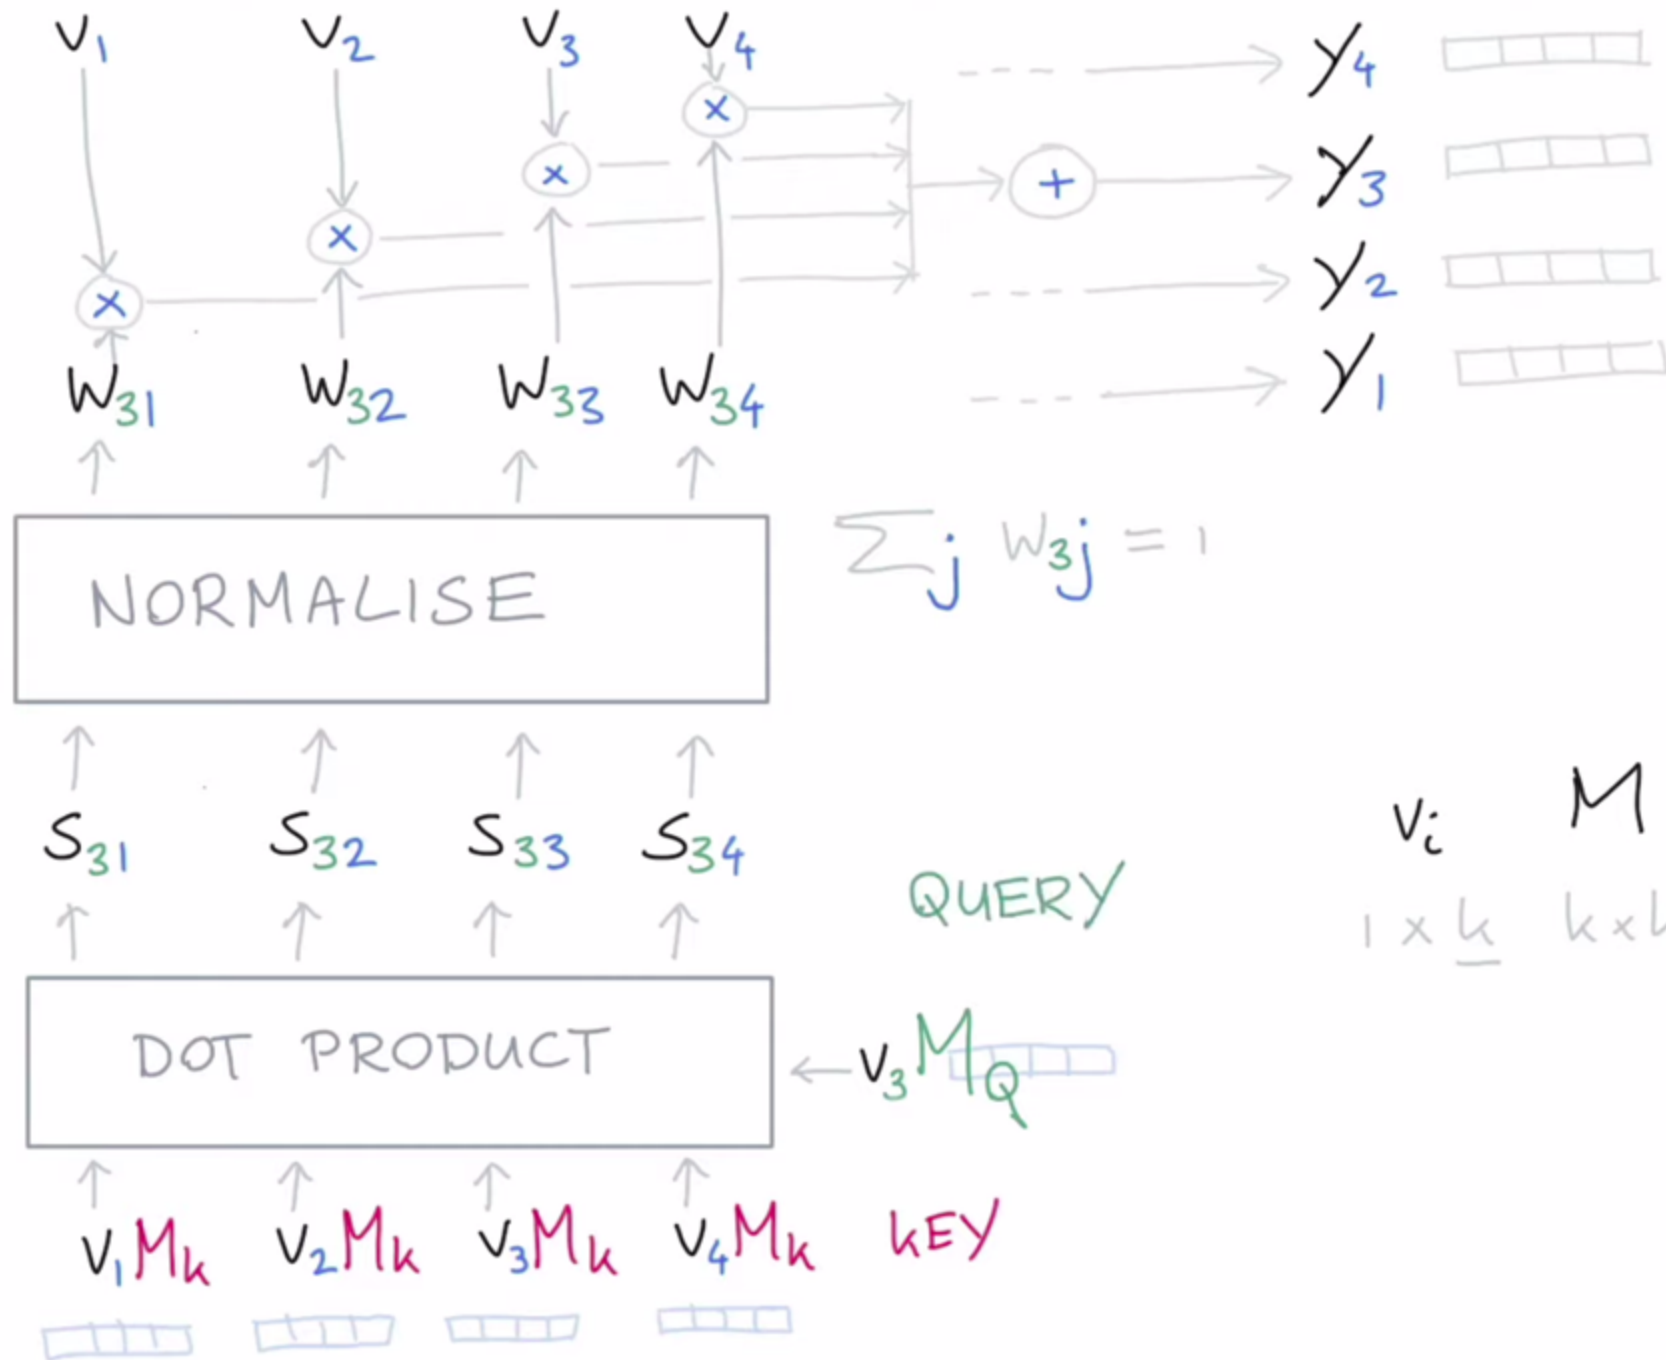 v1 v2 v3 v4
× × × ×
+
y4
y3
y2
y1
w31 w32 w33 w34
NORMALISE
∑j w3j = 1
s31 s32 s33 s34
QUERY
vi M
1 × k k ×
DOT PRODUCT
v3MQ
v1Mk v2Mk v3Mk v4Mk kEY